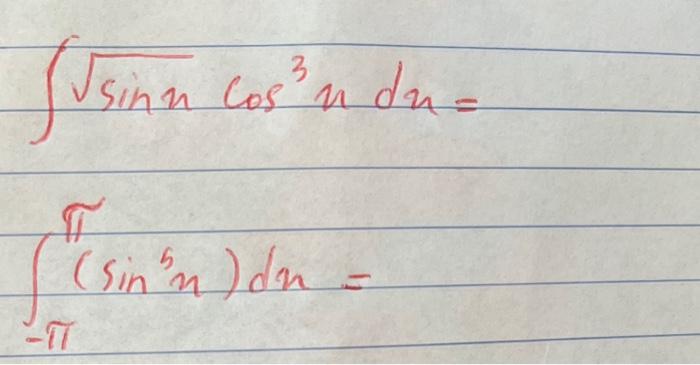 ∫√sin x cos³x dx =
∫_{-π}^{π} (sin⁵x) dx =